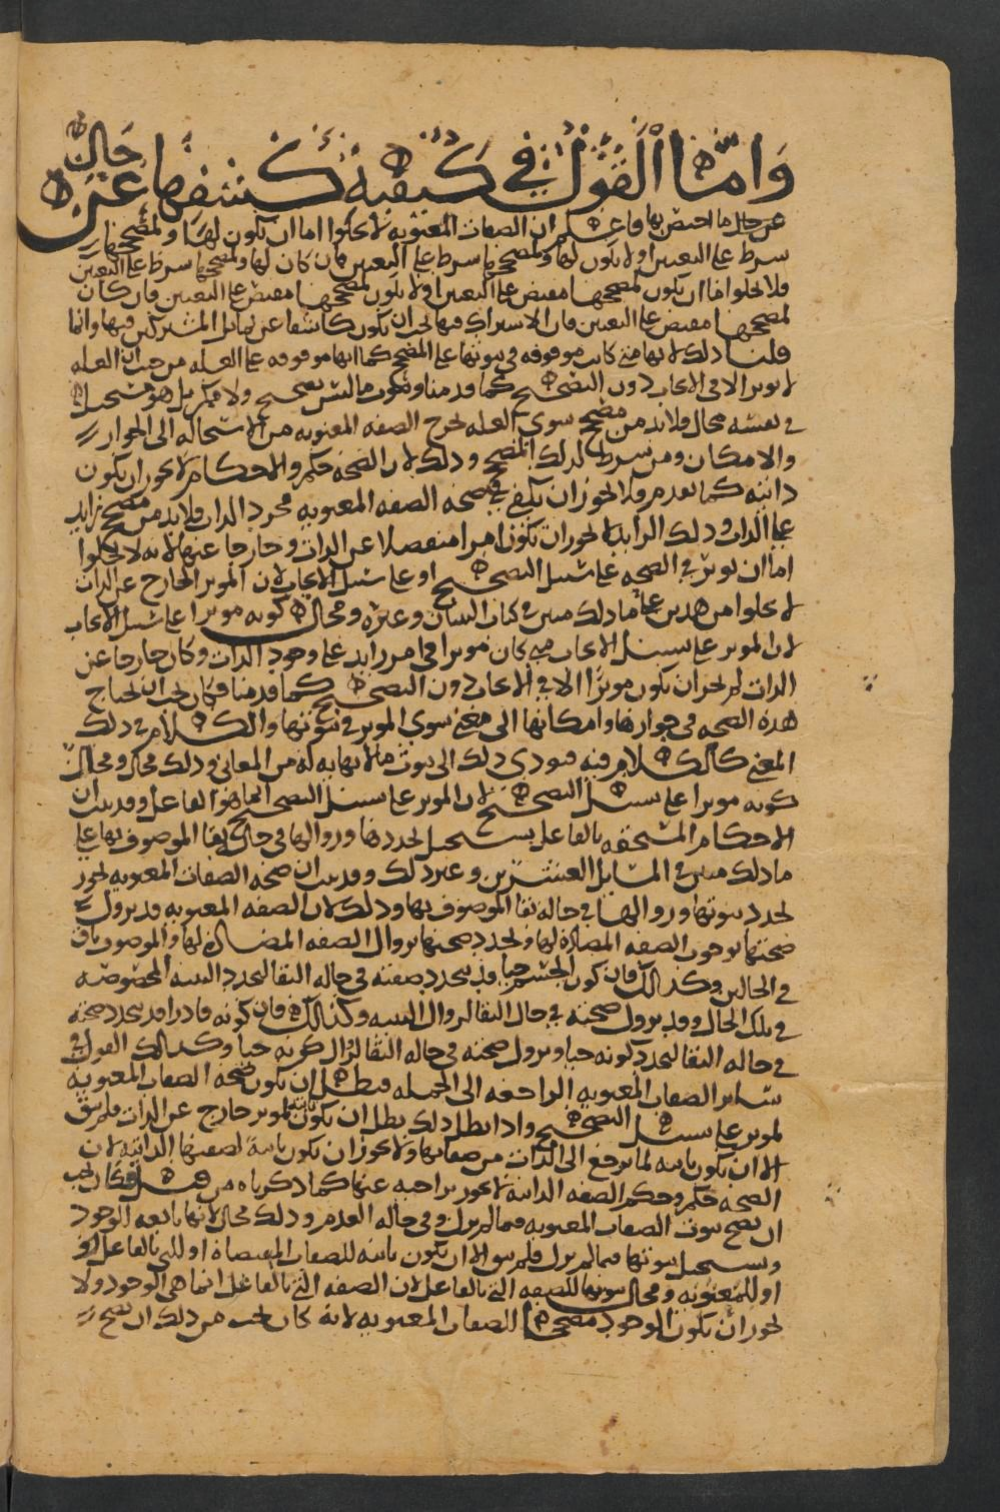 وامّا القول في كيفية كشفها عن حال
عن حال ما اختص بها فاعلم ان الصفات المعنويه لا تخلوا اما ان تكون لها ولمصححها
شرط على التعيين او لا يكون لها ولمصححها شرط على التعيين فان كان لها ولمصححها شرط على التعيين
فلا تخلوا اما ان يكون لمصححها مقتض على التعيين او لا يكون لمصححها مقتض على التعيين فان كان
لمصححها مقتض على التعيين فان الاشتراك فيها يجب ان يكون كاشفا عن تماثل المشتركين فيها وانما
قلنا ذلك لانها متى كانت موقوفه في ثبوتها على المصحح كما انها موقوفه على العله من حيث ان العله
لا توثر الا في الايجاب دون التصحيح كما قدمنا وتكون ما ليس بصحيح ولا ممكن بل هو مستحيل
في نفسه محال فلا بد من مصحح سوى العله يخرج الصفه المعنويه من الاستحاله الى الجواز
والامكان ومن شرط لذلك المصحح وذلك لان الصحه حكم والاحكام لا يجوز ان يكون
ذاتيه كما تقدم ولا يجوز ان يكفي في صحة الصفه المعنويه مجرد الذات فلا بد من مصحح زايد
على الذات وذلك الزايد لا يجوز ان يكون امرا منفصلا عن الذات وخارجا عنها لانه لا يخلوا
اما ان يوثر في الصحه على سبيل التصحيح او على سبيل الايجاب لان الموثر الخارج عن الذات
لا يخلوا من هذين على ما ذلك مبين في كتاب البيان وغيره ومحال كونه موثرا على سبيل الايجاب
لان الموثر على سبيل الايجاب متى كان موثرا في امر زايد على وجود الذات وكان خارجا عن
الذات لم يجز ان يكون موثرا الا في الايجاب دون التصحيح كما قدمنا فكان يجب ان يحتاج
هذه الصحه في جوازها وامكانها الى معنى سوى الموثر في ثبوتها والكلام في ذلك
المعنى كالكلام فيه فيودي ذلك الى ثبوت ما لا نهايه له من المعاني وذلك محال ومحال
كونه موثرا على سبيل التصحيح لان الموثر على سبيل التصحيح انما هو الفاعل وقد ثبت ان
الاحكام المستحقه بالفاعل يستحيل تجددها وزوالها في حال بقا الموصوف بها على
ما ذلك مبين في المسايل العشرين وغير ذلك وقد ثبت ان صحه الصفات المعنويه يجوز
تجدد ثبوتها وزوالها في حاله بقا الموصوف بها وذلك لان الصفه المعنويه قد يزول
صحتها بوجود الصفه المضاده لها وتجدد صحتها بزوال الصفه المضاده لها والموصوف باق
في الحالين وكذلك فان كون الجسم حيا قد يتجدد صفته في حاله البقا لتجدد البنيه المخصوصه
في تلك الحال وقد يزول صحته في حال البقا لزوال البنيه وكذلك فان كونه قادرا قد يتجدد صحته
في حاله البقا لتجدد كونه حيا ويزول صحته في حاله البقا لزوال كونه حيا وكذلك القول في
ساير الصفات المعنويه الراجعه الى الجمله فبطل ان يكون صحه الصفات المعنويه
لموثر على سبيل التصحيح واذا بطل ذلك بطل ان يكون لموثر خارج عن الذات فلم يبق
الا ان يكون تابعه لما يرجع الى الذات من صفاتها ولا يجوز ان يكون تابعه لصفتها الذاتيه لان
الصحه حكم وحكم الصفه الذاتيه لا يجوز تراخيه عنها كما ذكرناه من قبل فكان يجب
ان يصح ثبوت الصفات المعنويه فيما لم يزل وفي حاله العدم وذلك محال لانها تابعه للوجود
ويستحيل ثبوتها فيما لم يزل فلم يبق الا ان يكون تابعه للصفات المقتضاه او للتي بالفاعل
او للمعنويه ومحال ثبوتها للصفه التي بالفاعل لان الصفه التي بالفاعل انما هي الوجود ولا
يجوز ان يكون الوجود مصححا للصفات المعنويه لانه كان يجب من ذلك ان يصح